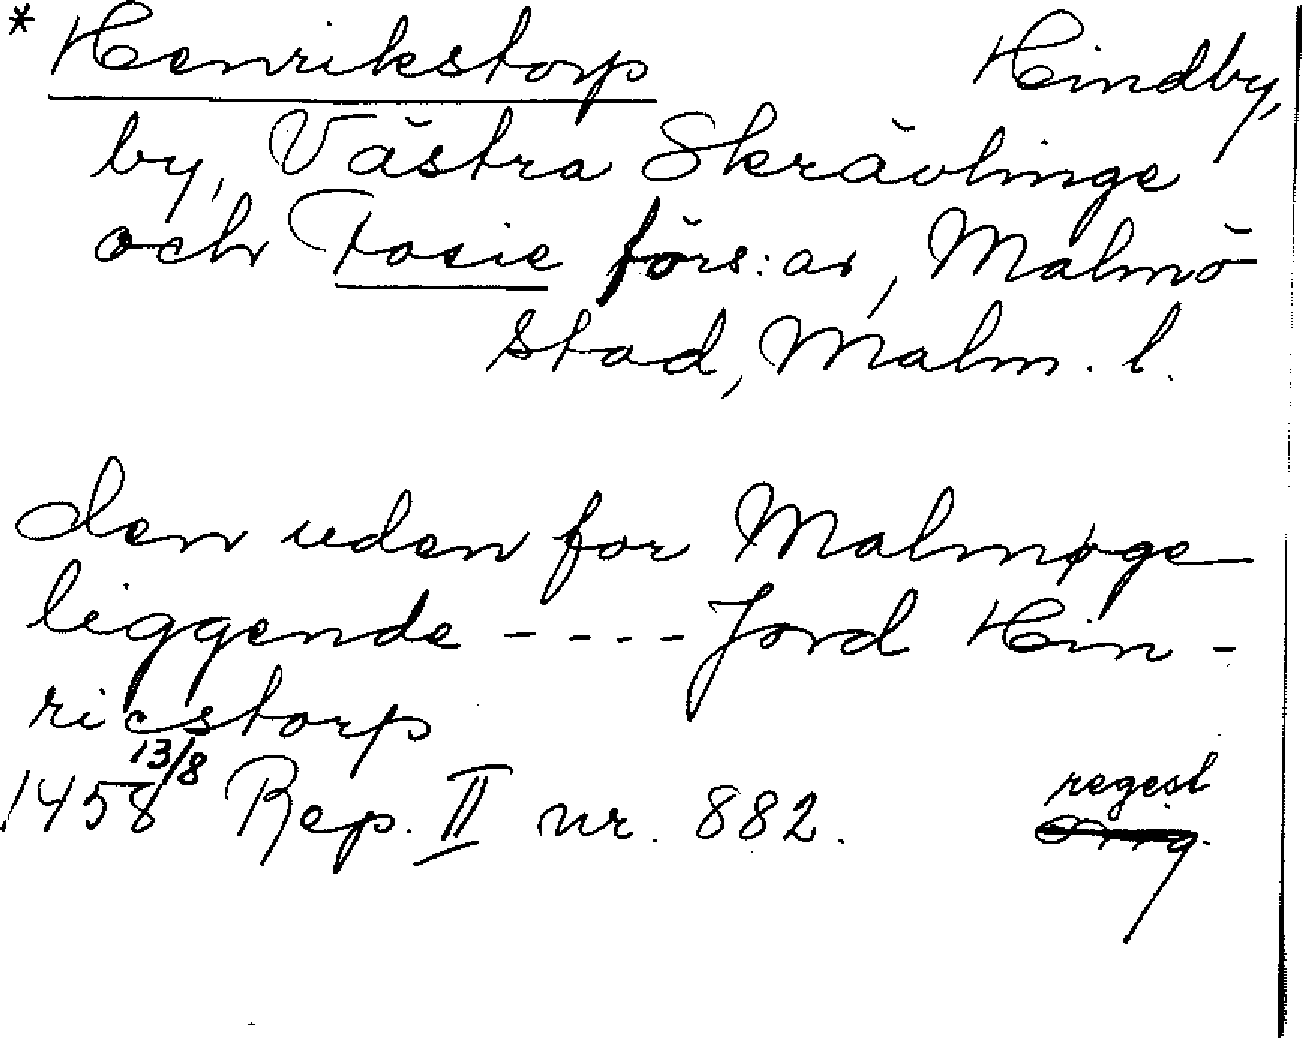 * Henrikstorp Hindby,
by, Västra Skrävlinge
och Fosie förs:ar, Malmö
stad, Malm. l.
den uden for Malmøge
liggende ---- Jord Hin-
ricstorp
1458 13/8 Rep. II nr. 882. regest
Orig.